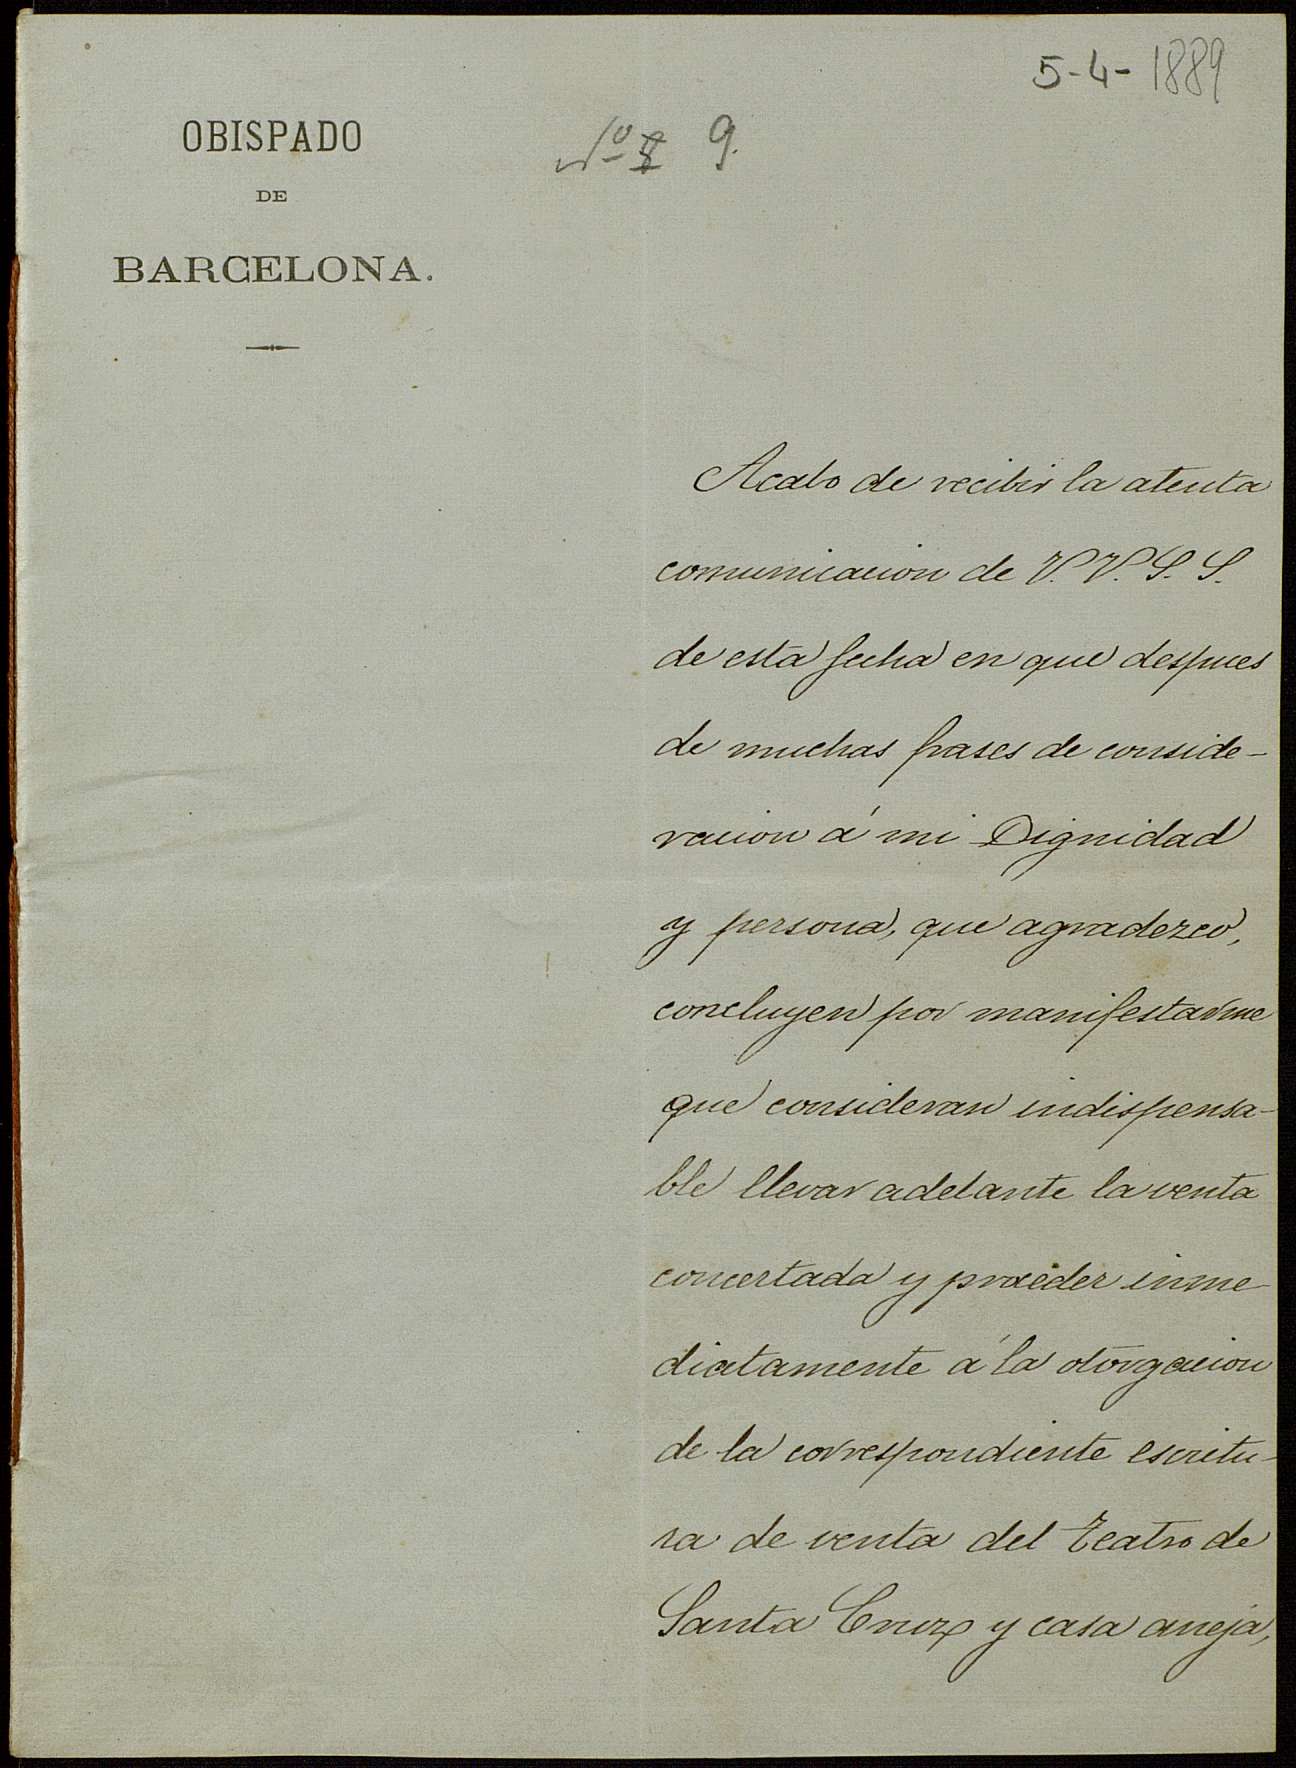 5-4-1889
OBISPADO
DE
BARCELONA.
Nº 8 9.
Acabo de recibir la atenta
comunicacion de V. V. S. S.
de esta fecha en que despues
de muchas frases de conside-
racion á mi Dignidad
y persona, que agradezco,
concluyen por manifestarme
que consideran indispensa-
ble llevar adelante la venta
concertada y proceder inme
diatamente á la otorgacion
de la correspondiente escritu-
ra de venta del Teatro de
Santa Cruz y casa aneja,